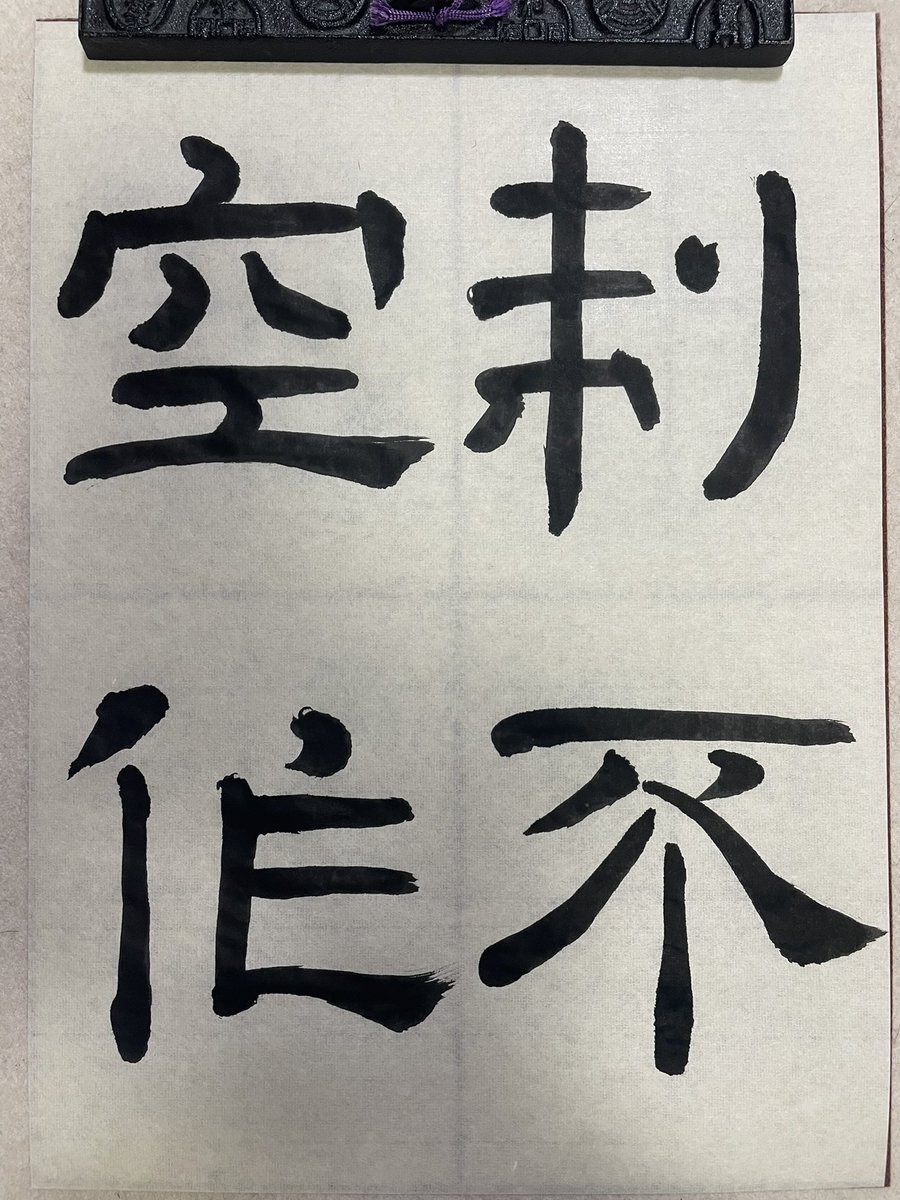 制不
空作